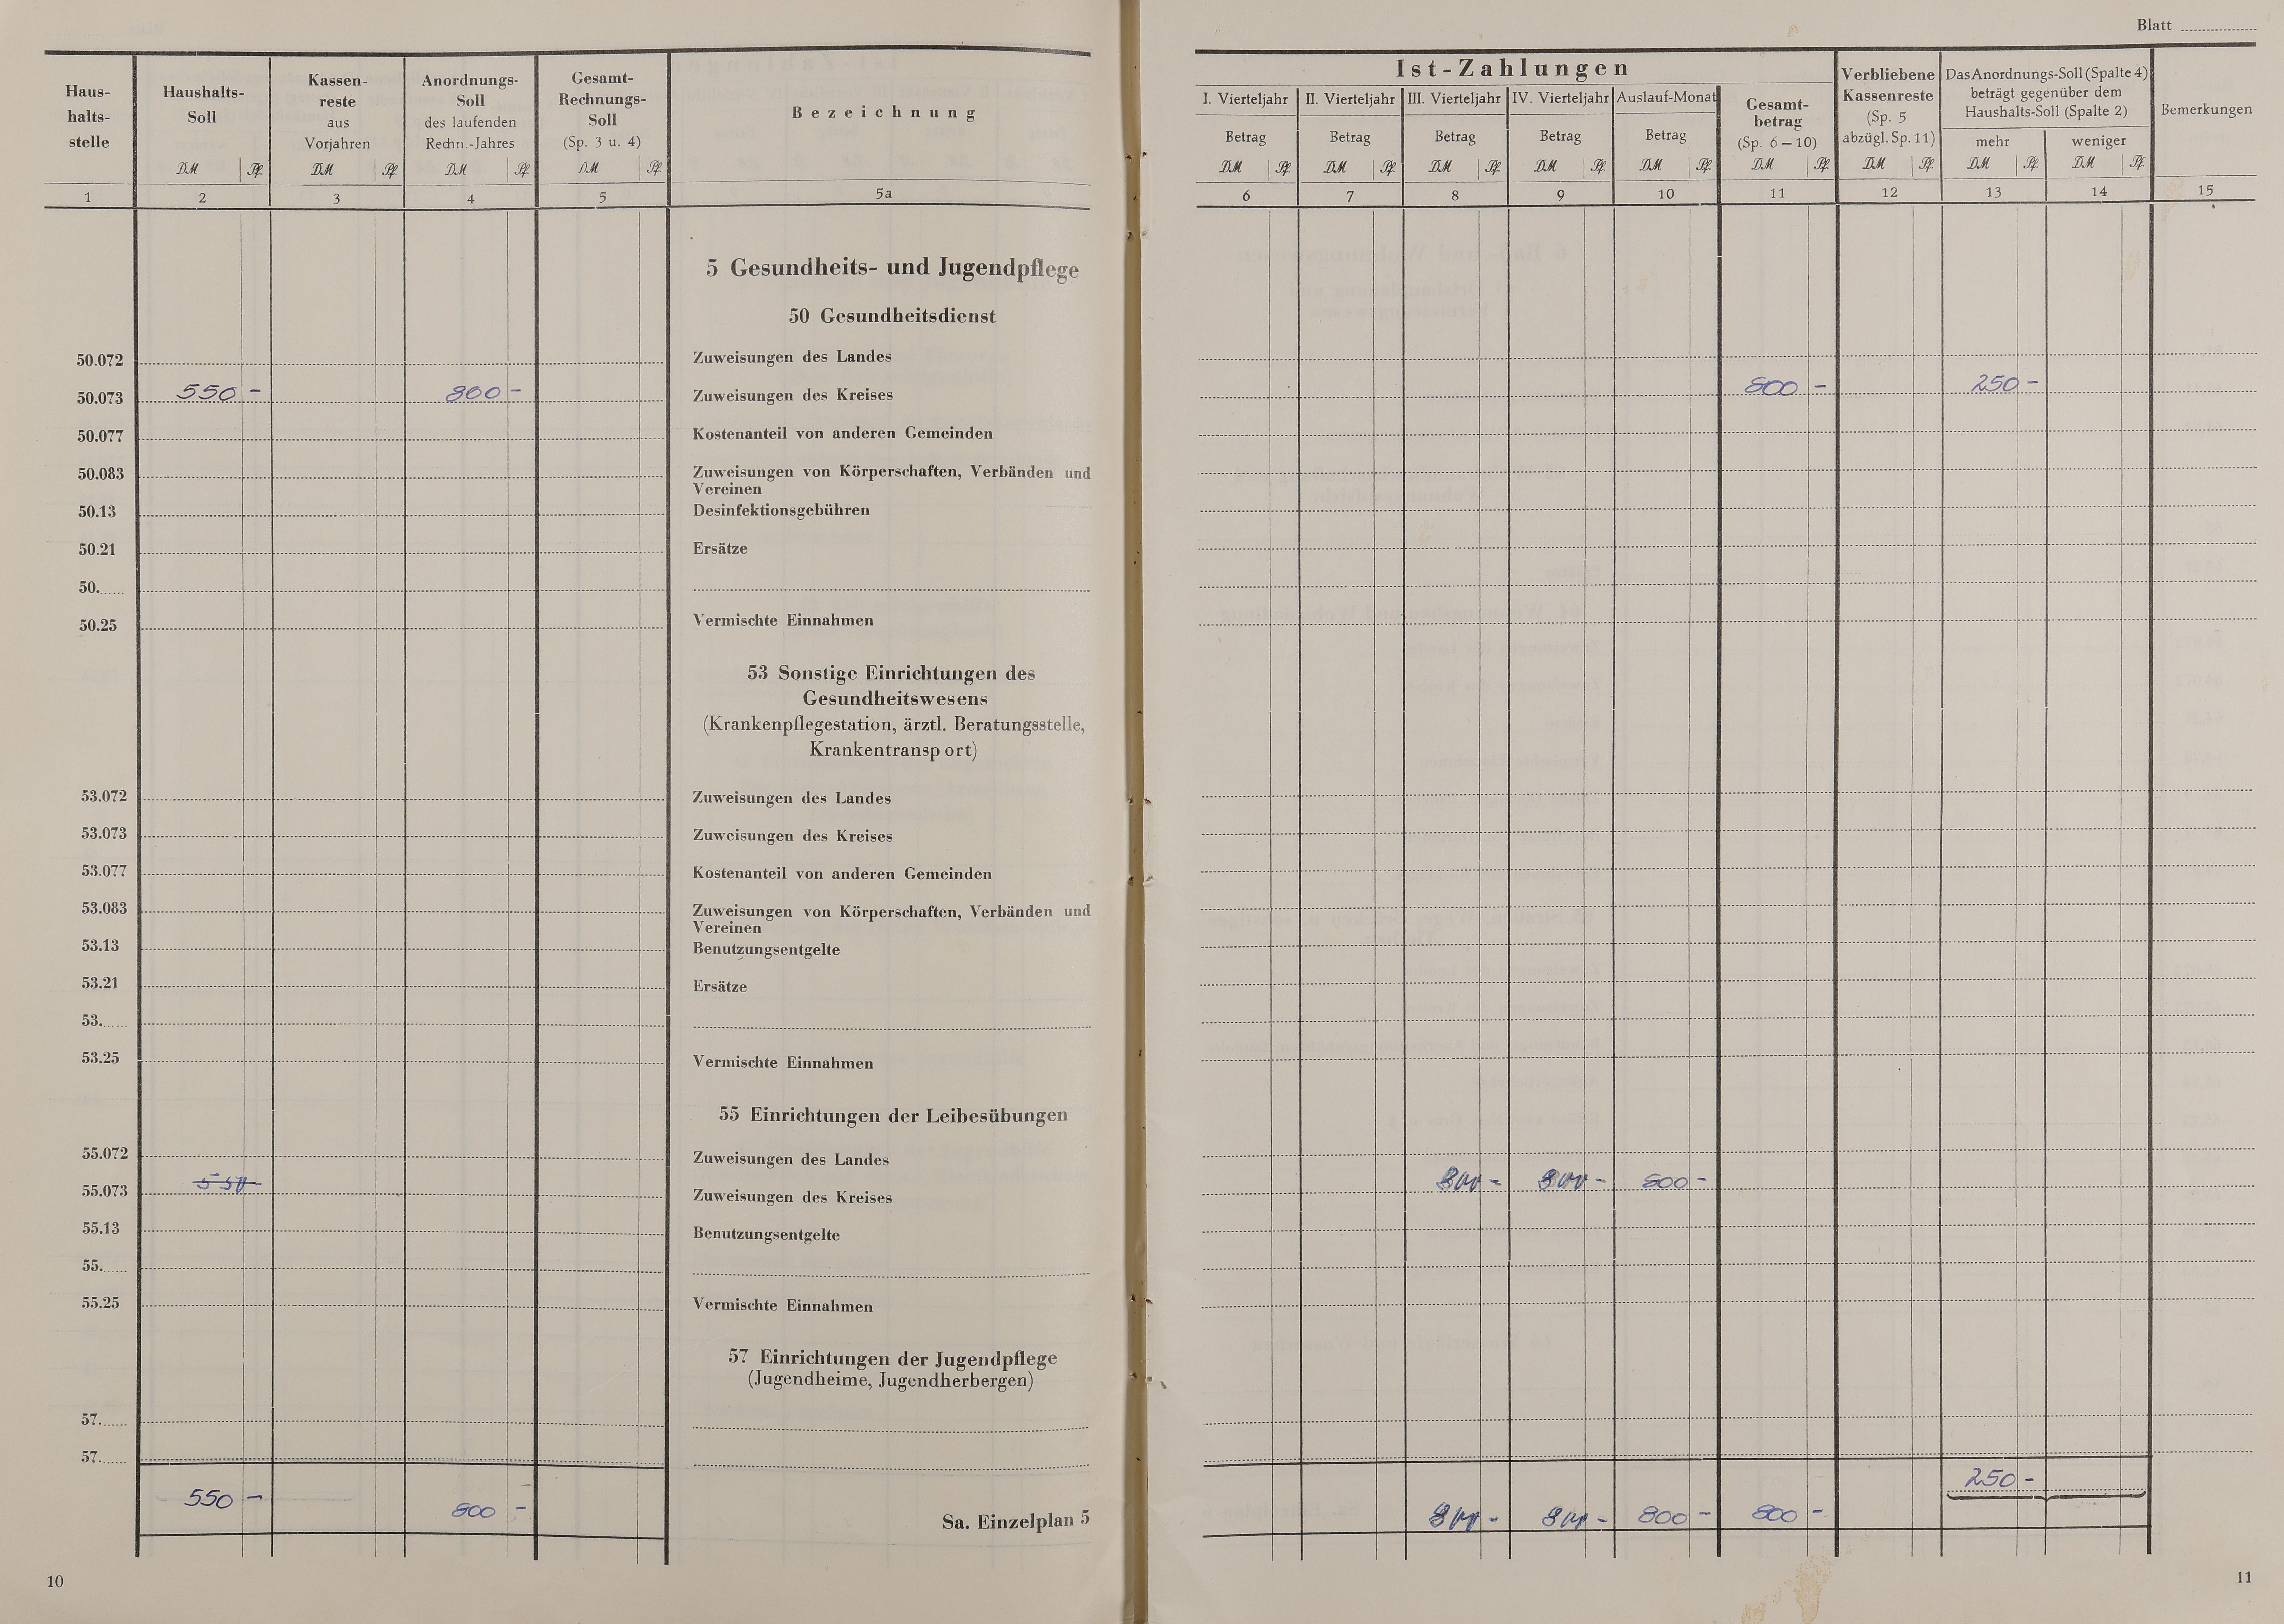 Blatt
Haus-
halts-
stelle
Haushalts-
Soll
Kassen-
reste
aus
Vorjahren
Anordnungs-
Soll
des laufenden
Rechn.-Jahres
Gesamt-
Rechnungs-
Soll
(Sp. 3 u. 4)
Bezeichnung
DM Pf. DM Pf. DM Pf. DM Pf.
1 2 3 4 5 5a
Ist-Zahlungen
I. Vierteljahr II. Vierteljahr III. Vierteljahr IV. Vierteljahr Auslauf-Monat
Betrag Betrag Betrag Betrag Betrag
Gesamt-
betrag
(Sp. 6–10)
Verbliebene
Kassenreste
(Sp. 5
abzügl. Sp. 11)
Das Anordnungs-Soll (Spalte 4)
beträgt gegenüber dem
Haushalts-Soll (Spalte 2)
mehr weniger
Bemerkungen
DM Pf. DM Pf. DM Pf. DM Pf. DM Pf. DM Pf. DM Pf. DM Pf. DM Pf.
6 7 8 9 10 11 12 13 14 15
5 Gesundheits- und Jugendpflege
50 Gesundheitsdienst
50.072 Zuweisungen des Landes
50.073 550 - 800 - Zuweisungen des Kreises 800 - 250 -
50.077 Kostenanteil von anderen Gemeinden
50.083 Zuweisungen von Körperschaften, Verbänden und
Vereinen
50.13 Desinfektionsgebühren
50.21 Ersätze
50.
50.25 Vermischte Einnahmen
53 Sonstige Einrichtungen des
Gesundheitswesens
(Krankenpflegestation, ärztl. Beratungsstelle,
Krankentransport)
53.072 Zuweisungen des Landes
53.073 Zuweisungen des Kreises
53.077 Kostenanteil von anderen Gemeinden
53.083 Zuweisungen von Körperschaften, Verbänden und
Vereinen
53.13 Benutzungsentgelte
53.21 Ersätze
53.
53.25 Vermischte Einnahmen
55 Einrichtungen der Leibesübungen
55.072 Zuweisungen des Landes
55.073 550 Zuweisungen des Kreises 800 - 800 - 800 -
55.13 Benutzungsentgelte
55.
55.25 Vermischte Einnahmen
57 Einrichtungen der Jugendpflege
(Jugendheime, Jugendherbergen)
57.
57.
250 -
550 - 800 - Sa. Einzelplan 5 800 - 800 - 800 - 800 -
10
11